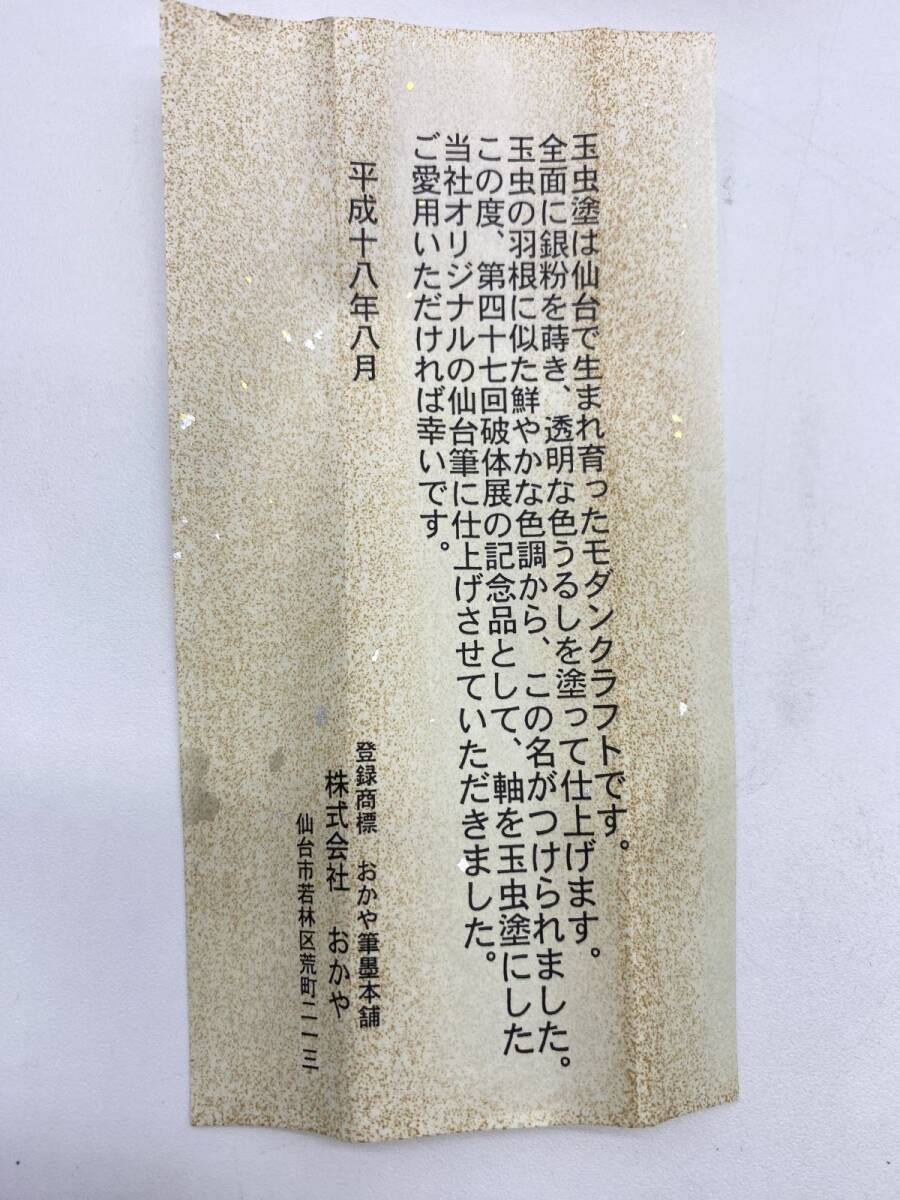 玉虫塗は仙台で生まれ育ったモダンクラフトです。
全面に銀粉を蒔き、透明な色うるしを塗って仕上げます。
玉虫の羽根に似た鮮やかな色調から、この名がつけられました。
この度、第四十七回破体展の記念品として、軸を玉虫塗にした
当社オリジナルの仙台筆に仕上げさせていただきました。
ご愛用いただければ幸いです。
平成十八年八月
登録商標 おかや筆墨本舗
株式会社 おかや
仙台市若林区荒町二一三